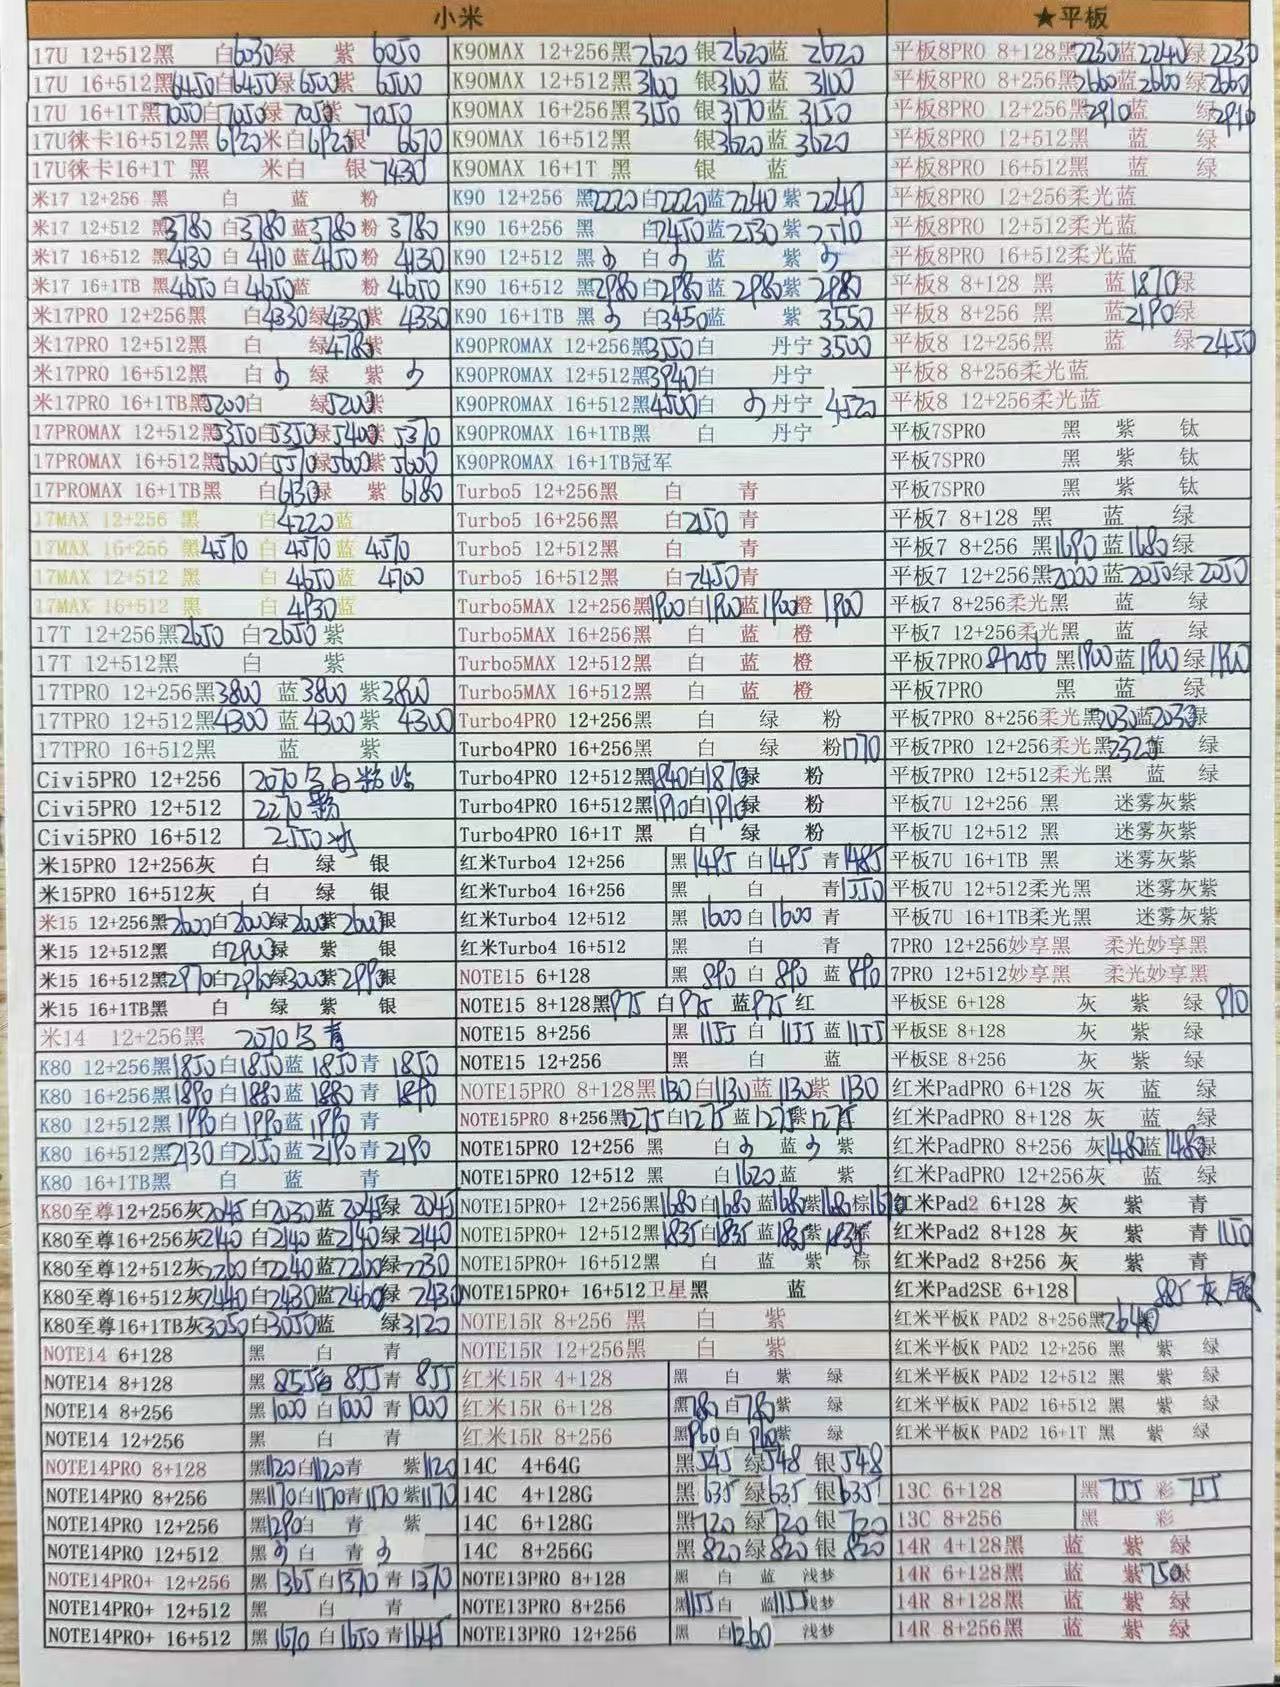 小米
17U 12+512黑 白6030绿 紫 6050
17U 16+512黑6450白6450绿 6500紫 6500
17U 16+1T黑7050白7050绿 7050紫 7050
17U徕卡16+512黑 6920米白6920银 6670
17U徕卡16+1T 黑 米白 银 7430
米17 12+256 黑 白 蓝 粉
米17 12+512 黑3780 白 3780 蓝3780 粉 3780
米17 16+512 黑4130 白 4110 蓝4150 粉 4130
米17 16+1TB 黑4650 白 4650蓝 粉 4650
米17PRO 12+256黑 白4330绿4330紫 4330
米17PRO 12+512黑 白 绿4780紫
米17PRO 16+512黑 白 绿 紫
米17PRO 16+1TB黑5200白 绿5200紫
17PROMAX 12+512黑5350白5350绿5400紫 5370
17PROMAX 16+512黑5600白5570绿5600紫 5600
17PROMAX 16+1TB黑 白6130绿 紫 6180
17MAX 12+256 黑 白4220蓝
17MAX 16+256 黑4570 白 4570 蓝 4570
17MAX 12+512 黑 白 4650蓝 4700
17MAX 16+512 黑 白 4930蓝
17T 12+256黑2650 白2650 紫
17T 12+512黑 白 紫
17TPRO 12+256黑3800 蓝 3800 紫3800
17TPRO 12+512黑4300 蓝 4300 紫 4300
17TPRO 16+512黑 蓝 紫
Civi5PRO 12+256 2070 白粉
Civi5PRO 12+512 2270
Civi5PRO 16+512 2550
米15PRO 12+256灰 白 绿 银
米15PRO 16+512灰 白 绿 银
米15 12+256黑2600白2600绿2600紫2600银
米15 12+512黑 白2900绿 紫 银
米15 16+512黑2970白2960绿3000紫2990银
米15 16+1TB黑 白 绿 紫 银
米14 12+256黑 2070 青
K80 12+256黑1850白1850蓝 1850 青 1850
K80 16+256黑1890白1880蓝 1880 青 1890
K80 12+512黑1990白1990蓝 1990 青
K80 16+512黑2130白2150蓝 2190 青 2190
K80 16+1TB黑 白 蓝 青
K80至尊12+256灰2045 白2030蓝 2045绿 2045
K80至尊16+256灰2140 白2140 蓝2140绿 2140
K80至尊12+512灰2260白2240蓝2260绿2230
K80至尊16+512灰2440白2430蓝2460绿 2430
K80至尊16+1TB灰3050白3050蓝 绿3120
NOTE14 6+128 黑 白 青
NOTE14 8+128 黑 855白 855青 855
NOTE14 8+256 黑1000 白1000 青 1000
NOTE14 12+256 黑 白 青
NOTE14PRO 8+128 黑1120白1120青 紫1120
NOTE14PRO 8+256 黑1170白1170青1170紫1170
NOTE14PRO 12+256 黑1290白 青 紫
NOTE14PRO 12+512 黑 白 青
NOTE14PRO+ 12+256 黑 1365白1370青1370
NOTE14PRO+ 12+512 黑 白 青
NOTE14PRO+ 16+512 黑 1670 白1650青1645
K90MAX 12+256黑2620 银2620蓝 2620
K90MAX 12+512黑3100 银3100蓝 3100
K90MAX 16+256黑3150 银3170蓝 3150
K90MAX 16+512黑 银3620蓝 3620
K90MAX 16+1T 黑 银 蓝
K90 12+256 黑2220白2220蓝2240 紫 2240
K90 16+256 黑 白2450蓝2530 紫2510
K90 12+512 黑 白 蓝 紫
K90 16+512 黑2980白2980蓝 2980紫 2980
K90 16+1TB 黑 白3450蓝 紫 3550
K90PROMAX 12+256黑3550白 丹宁3500
K90PROMAX 12+512黑3940白 丹宁
K90PROMAX 16+512黑4500白 丹宁 4520
K90PROMAX 16+1TB黑 白 丹宁
K90PROMAX 16+1TB冠军
Turbo5 12+256黑 白 青
Turbo5 16+256黑 白2150 青
Turbo5 12+512黑 白 青
Turbo5 16+512黑 白2450青
Turbo5MAX 12+256黑1900白1900蓝1900橙 1900
Turbo5MAX 16+256黑 白 蓝 橙
Turbo5MAX 12+512黑 白 蓝 橙
Turbo5MAX 16+512黑 白 蓝 橙
Turbo4PRO 12+256黑 白 绿 粉
Turbo4PRO 16+256黑 白 绿 粉1770
Turbo4PRO 12+512黑1840白1870绿 粉
Turbo4PRO 16+512黑1910白1910绿 粉
Turbo4PRO 16+1T 黑 白 绿 粉
红米Turbo4 12+256 黑1495 白1495 青1485
红米Turbo4 16+256 黑 白 青1550
红米Turbo4 12+512 黑 1600 白1600 青
红米Turbo4 16+512 黑 白 青
NOTE15 6+128 黑 890 白 890 蓝890
NOTE15 8+128黑975 白975 蓝975 红
NOTE15 8+256 黑 1155 白 1155 蓝1155
NOTE15 12+256 黑 白 蓝
NOTE15PRO 8+128黑1130白1130蓝1130紫 1130
NOTE15PRO 8+256黑1275白1275蓝1275紫1275
NOTE15PRO 12+256 黑 白 蓝 紫
NOTE15PRO 12+512 黑 白1620蓝 紫
NOTE15PRO+ 12+256黑1680白1680蓝1680紫1680棕1670
NOTE15PRO+ 12+512黑1835白1835蓝1835紫1835棕
NOTE15PRO+ 16+512黑 白 蓝 紫 棕
NOTE15PRO+ 16+512卫星黑 蓝
NOTE15R 8+256 黑 白 紫
NOTE15R 12+256黑 白 紫
红米15R 4+128 黑 白 紫 绿
红米15R 6+128 黑780白780紫 绿
红米15R 8+256 黑960白910紫 绿
14C 4+64G 黑545 绿548 银548
14C 4+128G 黑 635绿635 银635
14C 6+128G 黑720 绿720 银 720
14C 8+256G 黑820绿820 银 820
NOTE13PRO 8+128 黑 白 蓝 浅梦
NOTE13PRO 8+256 黑1155白 蓝1155浅梦
NOTE13PRO 12+256 黑 白1260 浅梦
★平板
平板8PRO 8+128黑2230蓝2240绿2230
平板8PRO 8+256黑2600蓝2600绿2600
平板8PRO 12+256黑2910蓝 绿2910
平板8PRO 12+512黑 蓝 绿
平板8PRO 16+512黑 蓝 绿
平板8PRO 12+256柔光蓝
平板8PRO 12+512柔光蓝
平板8PRO 16+512柔光蓝
平板8 8+128 黑 蓝1870绿
平板8 8+256 黑 蓝2190绿
平板8 12+256黑 蓝 绿2450
平板8 8+256柔光蓝
平板8 12+256柔光蓝
平板7SPRO 黑 紫 钛
平板7SPRO 黑 紫 钛
平板7SPRO 黑 紫 钛
平板7 8+128 黑 蓝 绿
平板7 8+256 黑1690蓝1680绿
平板7 12+256黑2000蓝2050绿2050
平板7 8+256柔光黑 蓝 绿
平板7 12+256柔光黑 蓝 绿
平板7PRO 8+256 黑1900蓝1900绿1900
平板7PRO 黑 蓝 绿
平板7PRO 8+256柔光黑2030蓝2030绿
平板7PRO 12+256柔光黑2320蓝 绿
平板7PRO 12+512柔光黑 蓝 绿
平板7U 12+256 黑 迷雾灰紫
平板7U 12+512 黑 迷雾灰紫
平板7U 16+1TB 黑 迷雾灰紫
平板7U 12+512柔光黑 迷雾灰紫
平板7U 16+1TB柔光黑 迷雾灰紫
7PRO 12+256妙享黑 柔光妙享黑
7PRO 12+512妙享黑 柔光妙享黑
平板SE 6+128 灰 紫 绿 910
平板SE 8+128 灰 紫 绿
平板SE 8+256 灰 紫 绿
红米PadPRO 6+128 灰 蓝 绿
红米PadPRO 8+128 灰 蓝 绿
红米PadPRO 8+256 灰1480蓝1480绿
红米PadPRO 12+256灰 蓝 绿
红米Pad2 6+128 灰 紫 青
红米Pad2 8+128 灰 紫 青1150
红米Pad2 8+256 灰 紫 青
红米Pad2SE 6+128 885灰
红米平板K PAD2 8+256黑2640
红米平板K PAD2 12+256 黑 紫 绿
红米平板K PAD2 12+512 黑 紫 绿
红米平板K PAD2 16+512 黑 紫 绿
红米平板K PAD2 16+1T 黑 紫 绿
13C 6+128 黑 755 彩 755
13C 8+256 黑 彩
14R 4+128黑 蓝 紫 绿
14R 6+128黑 蓝 紫750绿
14R 8+128黑 蓝 紫 绿
14R 8+256黑 蓝 紫 绿